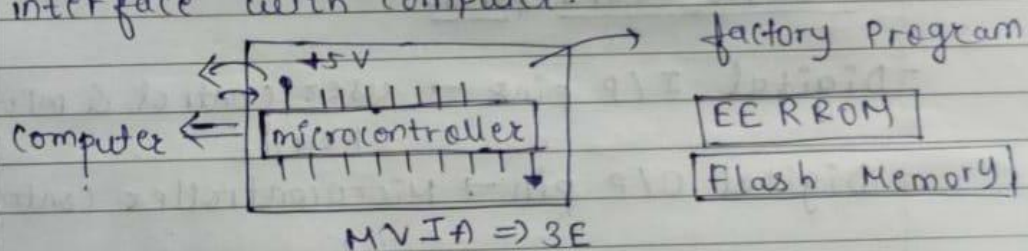 interface with computer.
factory Program
+5V
computer
microcontroller
EE RROM
Flash Memory
MVIA => 3E